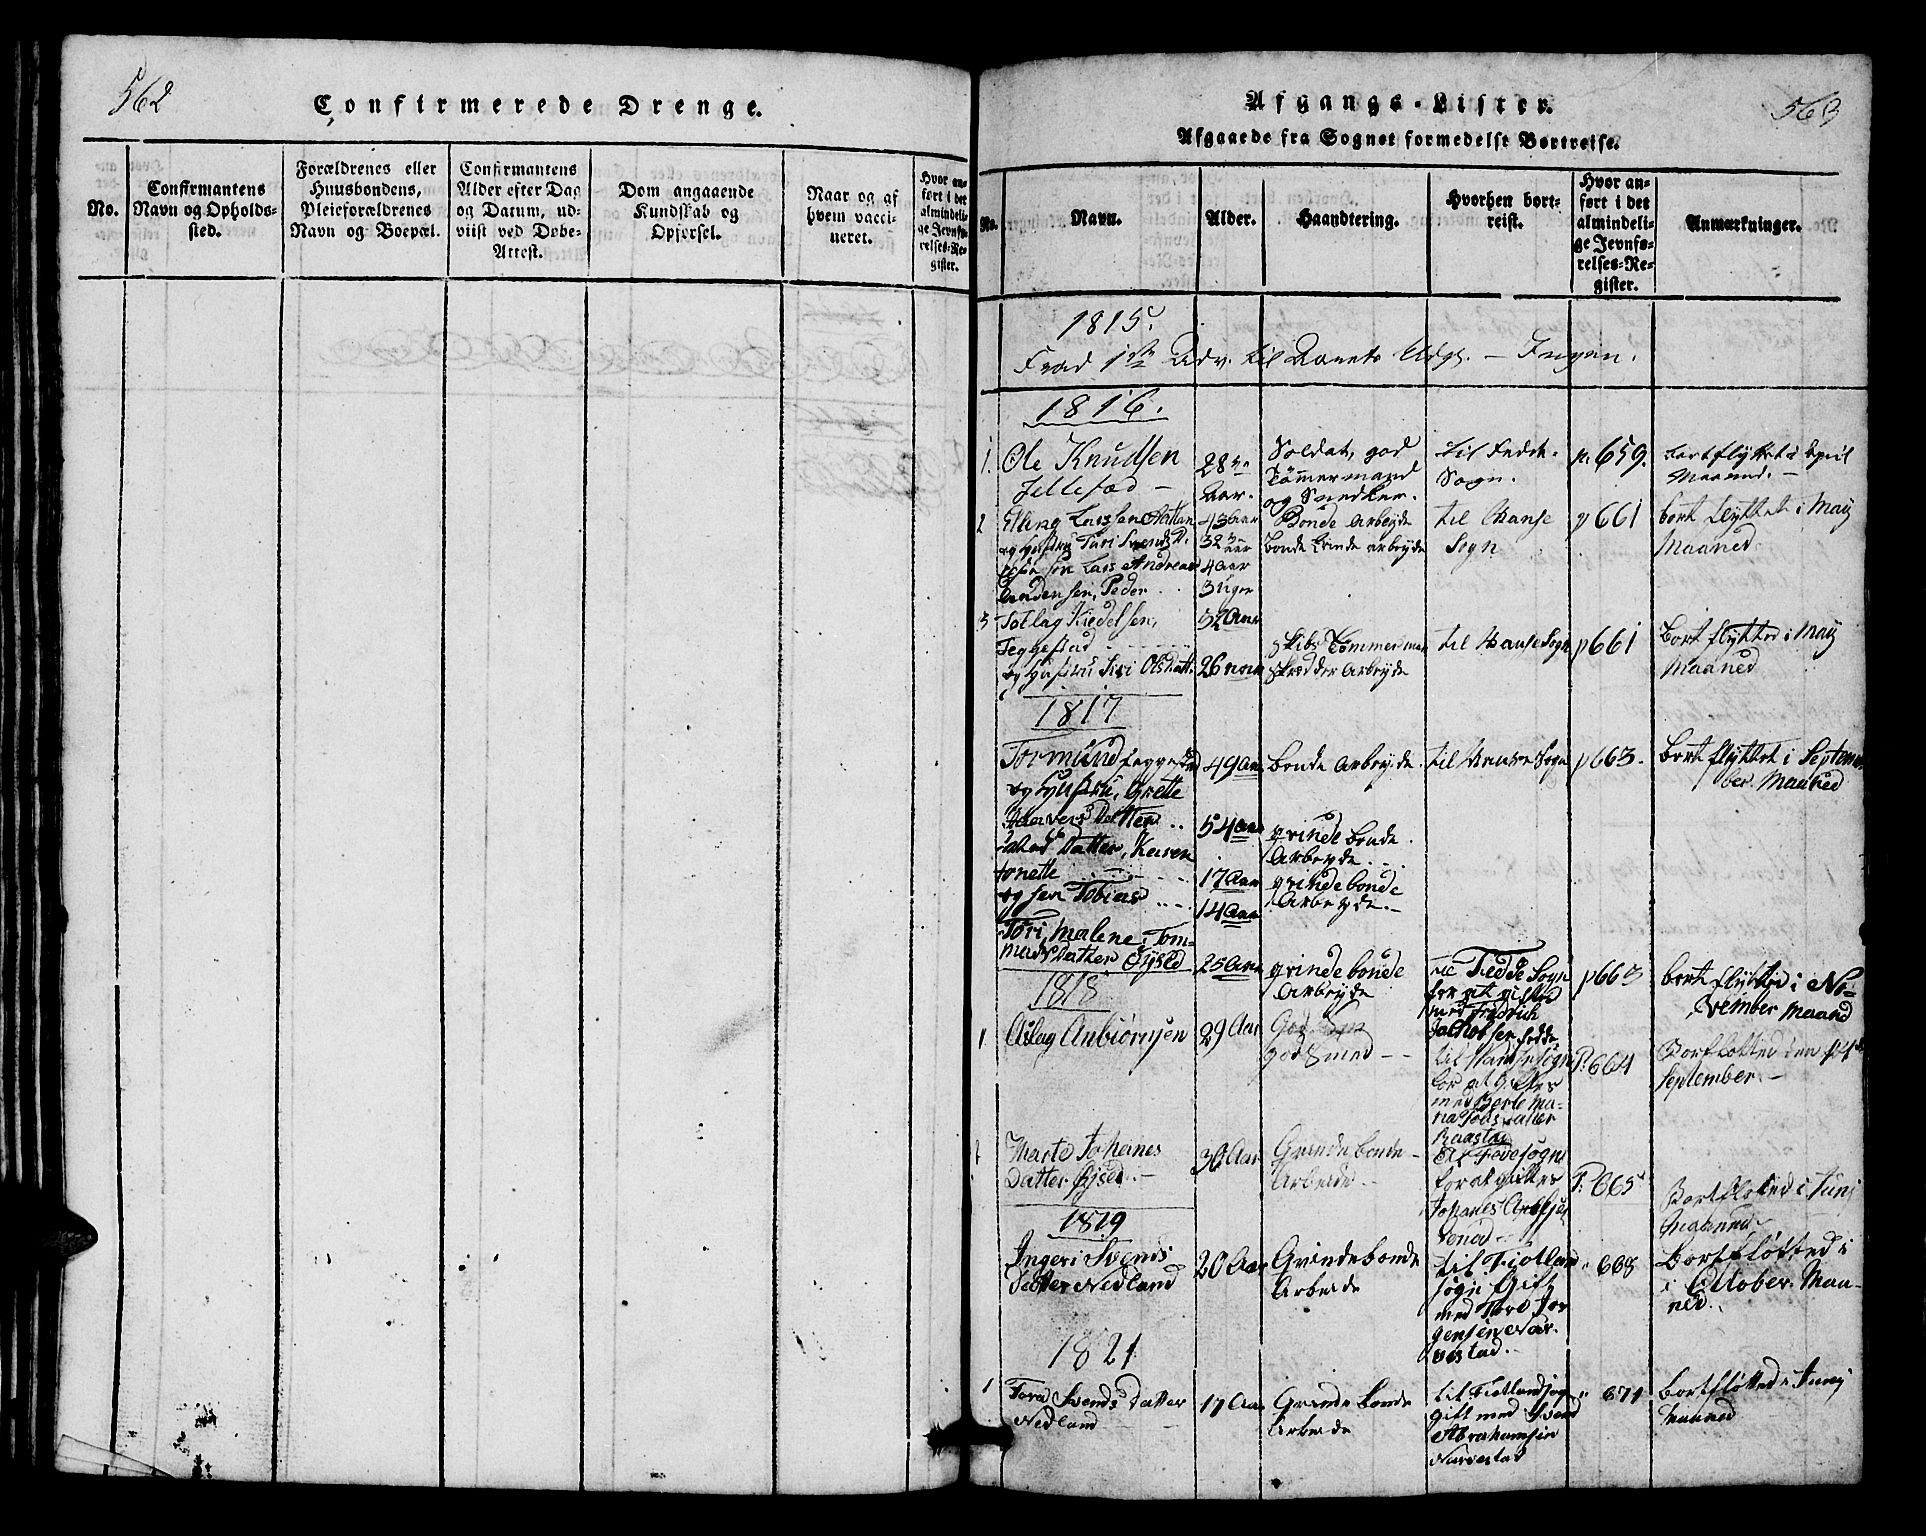 562
Confirmerede Drenge.
No.
Confirmantens
Navn og Opholds-
sted.
Forældrenes eller
Huusbondens,
Pleieforældrenes
Navn og Boepæl.
Confirmantens
Alder efter Dag
og Datum, ud-
viist ved Døbe-
Attest.
Dom angaaende
Kundskab og
Opførsel.
Naar og af
hvem vacci-
neret.
Hvor an-
ført i det
almindeli-
ge Jevnfø-
relses-Re-
gister.
563
Afgangs-Lister.
Afgaaede fra Sognet formedelst Bortreise.
No.
Navn.
Alder.
Haandtering.
Hvorhen bort-
reist.
Hvor an-
ført i det
almindeli-
ge Jevnfø-
relses-Re-
gister.
Anmærkninger.
1815.
Fra 1ste Adv. til Aarets Udg. – Ingen.
1816.
1.
Ole Knudsen
Jellestad –
28
Aar.
Soldat, god
Tømmermand
og Snedker.
til Fedde
Sogn.
p. 659.
bortflyttet i April
Maaned. –
2
Elling Larssen
og Hustru Turi Svends D.
Søn Lars Andreas
Anden Søn, Peder
43 Aar
32 Aar
4 Aar
3 Uger
Bonde Arbeyde
bonde qvinde arbeyde
til Hanse
Sogn
p 661
bort flyttet i May
Maaned
3
Tollag Kiedelsen,
Feggestad
og Hustru Siri Olsdatt:
52 Aar
26 Aar
Skibs Tømmerman
skrædder Arbeyde
til Hanse Sogn
p 661
Bort flyttet i May
Maaned
1817
Tormund Feggestad
og Hustru, Grette
Datter
Datter, Karen
Tonette
og søn Tobias
49 Aar
54 Aar
17 Aar
14 Aar
bonde Arbeyde
qvinde bonde
Arbeyde
qvinde bonde
Arbeyde. –
til Hanse Sogn
p 663.
Bort flyttet i Septem
ber Maaned
Tori Malene Tor-
munds Datter Øysed
25 Aar
qvinde bonde
Arbeyde
til Fedde Sogn
for at giftes
med Fredrich
Jacobsen Fedde
p 663
bort flyttet i No-
vember Maand
1818
1
Aslag Anbiørnsen
29 Aar
God Smed – –
til Hanse Sogn
for at giftes
med Berte Ma-
ria Tobs Datter
Raastad
P. 664
Bortflotted den 14de
September –
2
Marte Johanes
Datter Øysed. –
30 Aar
Qvinde bonde –
Arbeide –
til Fede Sogn
for at giftes
Johanes
P. 665
Bortflotted i Junj
Maaned
1819
Ingeri Svends
Datter Nedland
20 Aar
Qvinde bonde
Arbeide
til Fiotland
sogn Gift
med Tore Jor
gensen Nar
vestad. –
668
Bortflotted i
October Maa-
ned.
1821
1
Tora Svends Datter
Nedland
17 Aar
Qvinde bonde
Arbeide
til Fiotland sogn
gift med Svend
Abrahamsen
Narvestad
671
bortflotted i Junj
Maaned